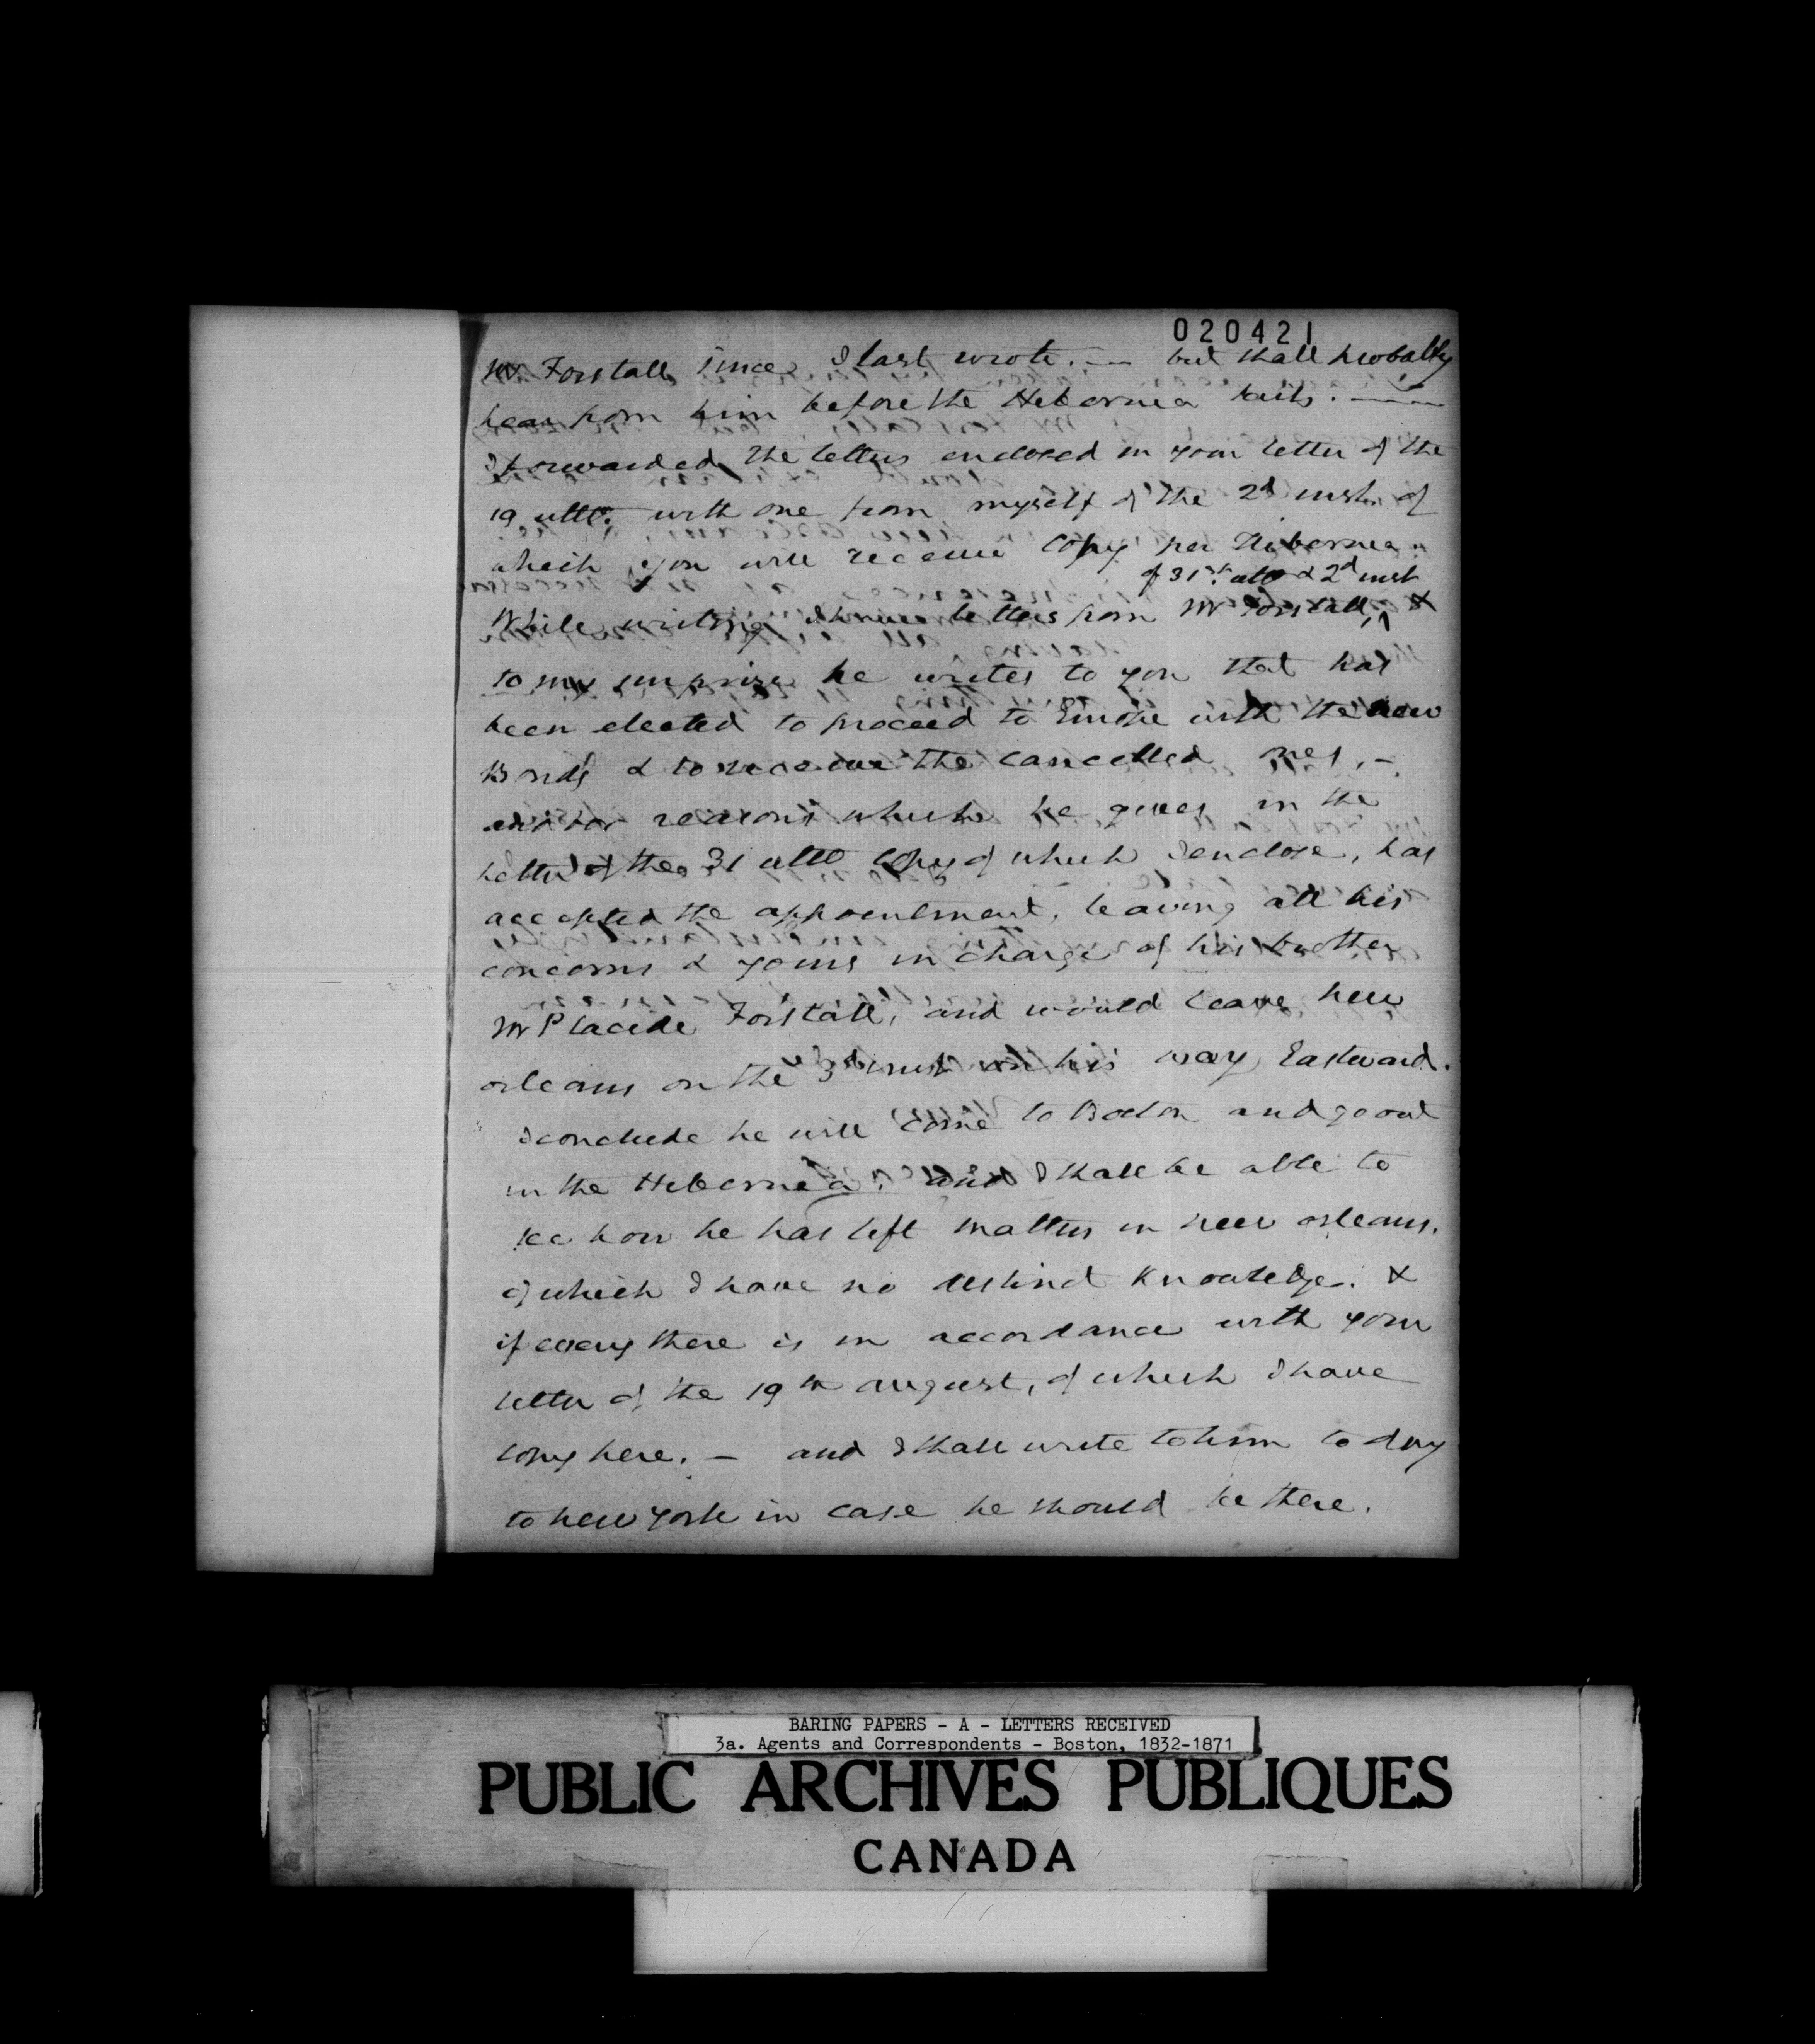 020421
Mr Forstall since I last wrote. — but shall probably
hear from him before the Hebernea sails. —
I forwarded the letters enclosed in your letter of the
19 ulto. with one from myself of the 2d inst. of
which you will receive Copy per Hibernea.
of 31st. ulto & 2d inst
While writing I have letters from Mr Forstall, &
to my surprize he writes to you that has
been elected to proceed to Europe with the new
Bonds & to receive the cancelled ones, -
and for reasons which he gives in the
letter of the 31 ulto Copy of which I enclose, has
accepted the appointment, leaving all his
concerns & yours in charge of his brother
Mr Placide Forstall, and would leave New
orleans on the 3d inst on his way Eastward.
I conclude he will come to Boston and go out
in the Hebernea. and I shall be able to
see how he has left matters in New orleans.
of which I have no distinct Knowledge. &
if every there is in accordance with your
letter of the 19th august, of which I have
Copy here. — and I shall write to him to day
to New York in case he should be there.
BARING PAPERS - A - LETTERS RECEIVED
3a. Agents and Correspondents - Boston, 1832-1871
PUBLIC ARCHIVES PUBLIQUES
CANADA